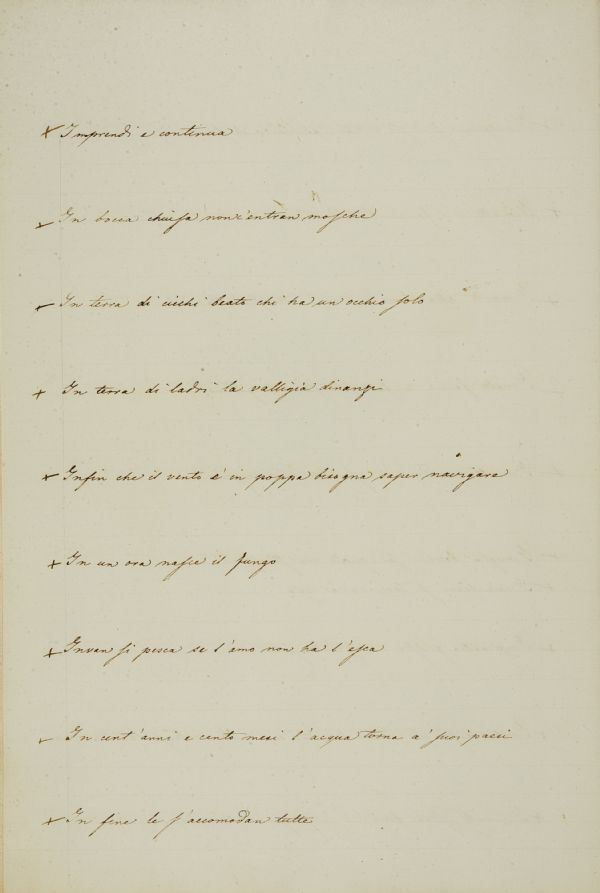 Imprendi e continua
In bocca chiusa non c'entran mosche
In terra di ciechi beato chi ha un occhio solo
In terra di ladri la valligia dinanzi
Infin che il vento è in poppa bisogna saper navigare
In un ora nasce il fungo
Invan si pesca se l'amo non ha l'esca
In cent'anni e cento mesi l'acqua torna a' suoi paesi
In fine le s'accomodan tutte